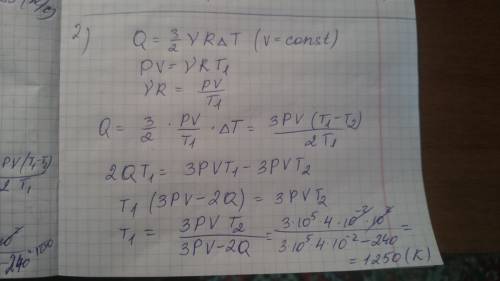 2)
Q = 3/2 γRΔT (V = const)
PV = γRT₁
γR = PV/T₁
Q = 3/2 · PV/T₁ · ΔT = 3PV(T₁-T₂)/2T₁
2QT₁ = 3PVT₁ - 3PVT₂
T₁(3PV-2Q) = 3PVT₂
T₁ = 3PVT₂/3PV-2Q = 3·10⁵·4·10⁻²·10³/3·10⁵·4·10⁻²-240 =
= 1250 (K)
PV(T₁-T₂)
2T₁
-240